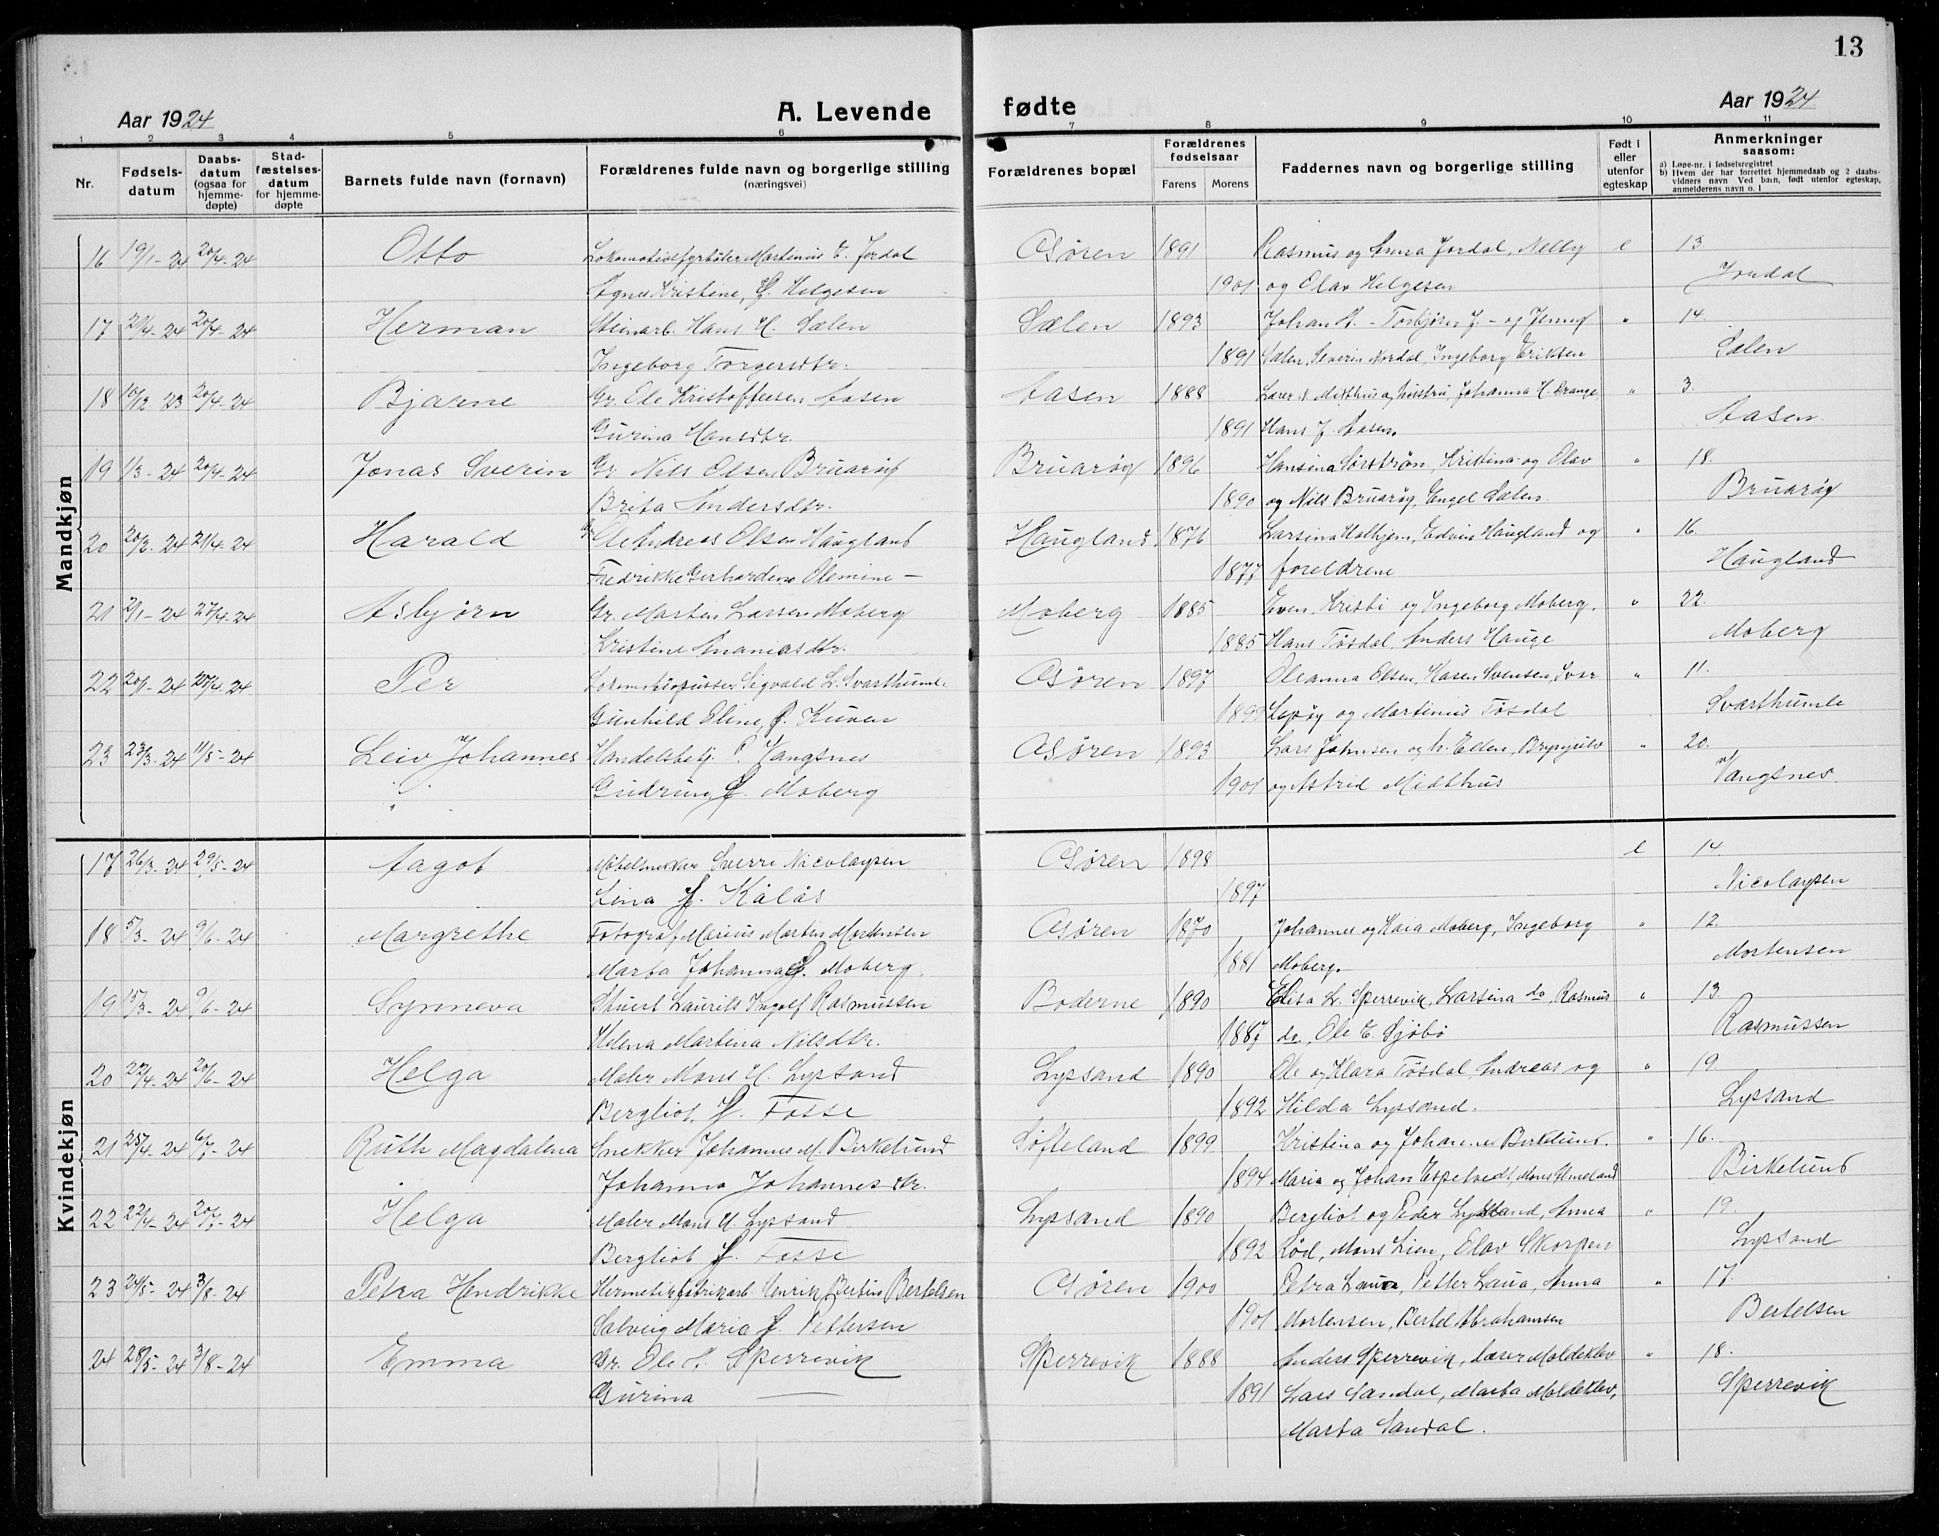 13
Aar 1924
A. Levende fødte
Aar 1924
1 2 3 4 5 6 7 8 9 10 11
Nr.
Fødselsdatum
Daabsdatum (ogsaa for hjemmedøpte)
Stadfæstelsesdatum for hjemmedøpte
Barnets fulde navn (fornavn)
Forældrenes fulde navn og borgerlige stilling (næringsvei)
Forældrenes bopæl
Forældrenes fødselsaar
Farens Morens
Faddernes navn og borgerlige stilling
Født i eller utenfor egteskap
Anmerkninger saasom:
a) Løpe-nr. i fødselsregistret
b) Hvem der har forrettet hjemmedaab og 2 daabsvidners navn Ved barn, født utenfor egteskap, anmelderens navn o. l
Mandkjøn
16 19/1-24 20/4-24 Otto Lokomotivfyrbøter Martinius E. Jordal Osøren 1891 Rasmus og Anna Jordal, Nelly e 13.
Agnes Kristine, f. Helgesen 1901 og Olav Helgesen Jordal
17 20/4-24 Herman Steinarb. Hans H. Sælen Sælen 1893 Johan H. - Torbjørn J. - og Jenny " 14.
Ingeborg Torgersdtr. 1891 Sælen, Severin Nordal, Ingeborg Eriksen Sælen
18 10/12 23 20/4-24 Bjarne Gr. Ole Kristoffersen Aasen Aasen 1888 Lærer Midthus og hustru, Johanna H. Drange, " 3.
Gurina Hansdtr. 1891 Hans J. Aasen. Aasen.
19 1/3-24 20/4-24 Jonas Sverin Gr. Nils Olsen Bruarøy Bruarøy 1896 Hansina Sørstrøn, Kristina og Olav " 18.
Brita Andersdtr. 1890 og Nils Bruarøy, Engel Sælen Bruarøy
20 20/2-24 21/4-24 Harald Gr. Ole Andreas Olsen Haugland Haugland 1876 Larsina Holhjem, Edvin Haugland og " 16.
Fredrikke Gerhardine Olemine - 1877 foreldrene Haugland
21 2/1-24 27/4-24 Asbjørn Gr. Martin Larsen Moberg Moberg 1885 Even, Kristi og Ingeborg Moberg, " 22.
Kristine Ananiasdtr. 1885 Hans Tøsdal, Anders Hauge Moberg
22 20/1-24 27/4-24 Per Lokomotivpusser Sigvald L. Svarthumle Osøren 1897 Oleanna Olsen, Karen Svensen, Ivar " 11.
Gunhild Eline, f. Kuven 1899 Lepsøy og Martinius Tøsdal Svarthumle
23 23/3-24 11/5-24 Leiv Johannes Handelsbetj. P. Vangsnes Osøren 1893 Lars Johnsen og h. Ellen, Brynjulv " 20.
Gudrun, f. Moberg 1901 og Astrid Midthus Vangsnes
Kvindekjøn
17 26/3-24 29/5-24 Aagot Møbelsnekker Sverre Nicolaysen Osøren 1898 e 14.
Lina f. Kålås 1897 Nicolaysen
18 5/3-24 9/6-24 Margrethe Fotograf Marius Martin Mortensen Osøren 1870 Johannes og Kaia Moberg, Ingeborg " 12.
Marta Johanna f. Moberg. 1881 Moberg. Mortensen
19 15/3-24 9/6-24 Synneva Skuesl Laurits Ingolf Rasmussen Boderne 1890 Elisa L. Sperrevik, Larsina do, Rasmus " 13.
Helena Martina Nilsdtr. 1887 do, Ole E. Sjøbø Rasmussen
20 22/4-24 20/6-24 Helga Maler Mons H. Lysand Lysand 1890 Ole og Klara Tøsdal, Andreas og " 19
Bergliot f. Fosse 1892 Hilda Lysand. Lysand
21 25/4-24 6/7-24 Ruth Magdalena Snekker Johannes M. Birkelund Søfteland 1899 Kristina og Johannes Birkelund. " 16.
Johanna Johannesdtr. 1894 Maria og Johan Espetvedt, Mons Ameland Birkelund
22 22/4-24 20/7-24 Helga Maler Mons H. Lysand Lysand 1890 Bergliot og Peder Lysand, Anna " 19.
Bergliot f. Fosse 1892 Rød, Mons Lien, Olav Skorpen Lysand
23 24/5-24 3/8-24 Petra Hendrikke Hermetikfabrikarb. Henrik Bertius Bertelsen Osøren 1900 Petra Laura, Petter Laua, Anna " 17.
Solveig Maria f. Pettersen 1901 Mortensen, Bertel Abrahamsen Bertelsen
24 28/5-24 3/8-24 Emma Gr. Ole A. Sperrevik Sperrevik 1888 Anders Sperrevik, Lærer Moldeklev " 18.
Gurina — 1891 Lars Sandal, Marta Moldeklev, Sperrevik
Marta Sandal.